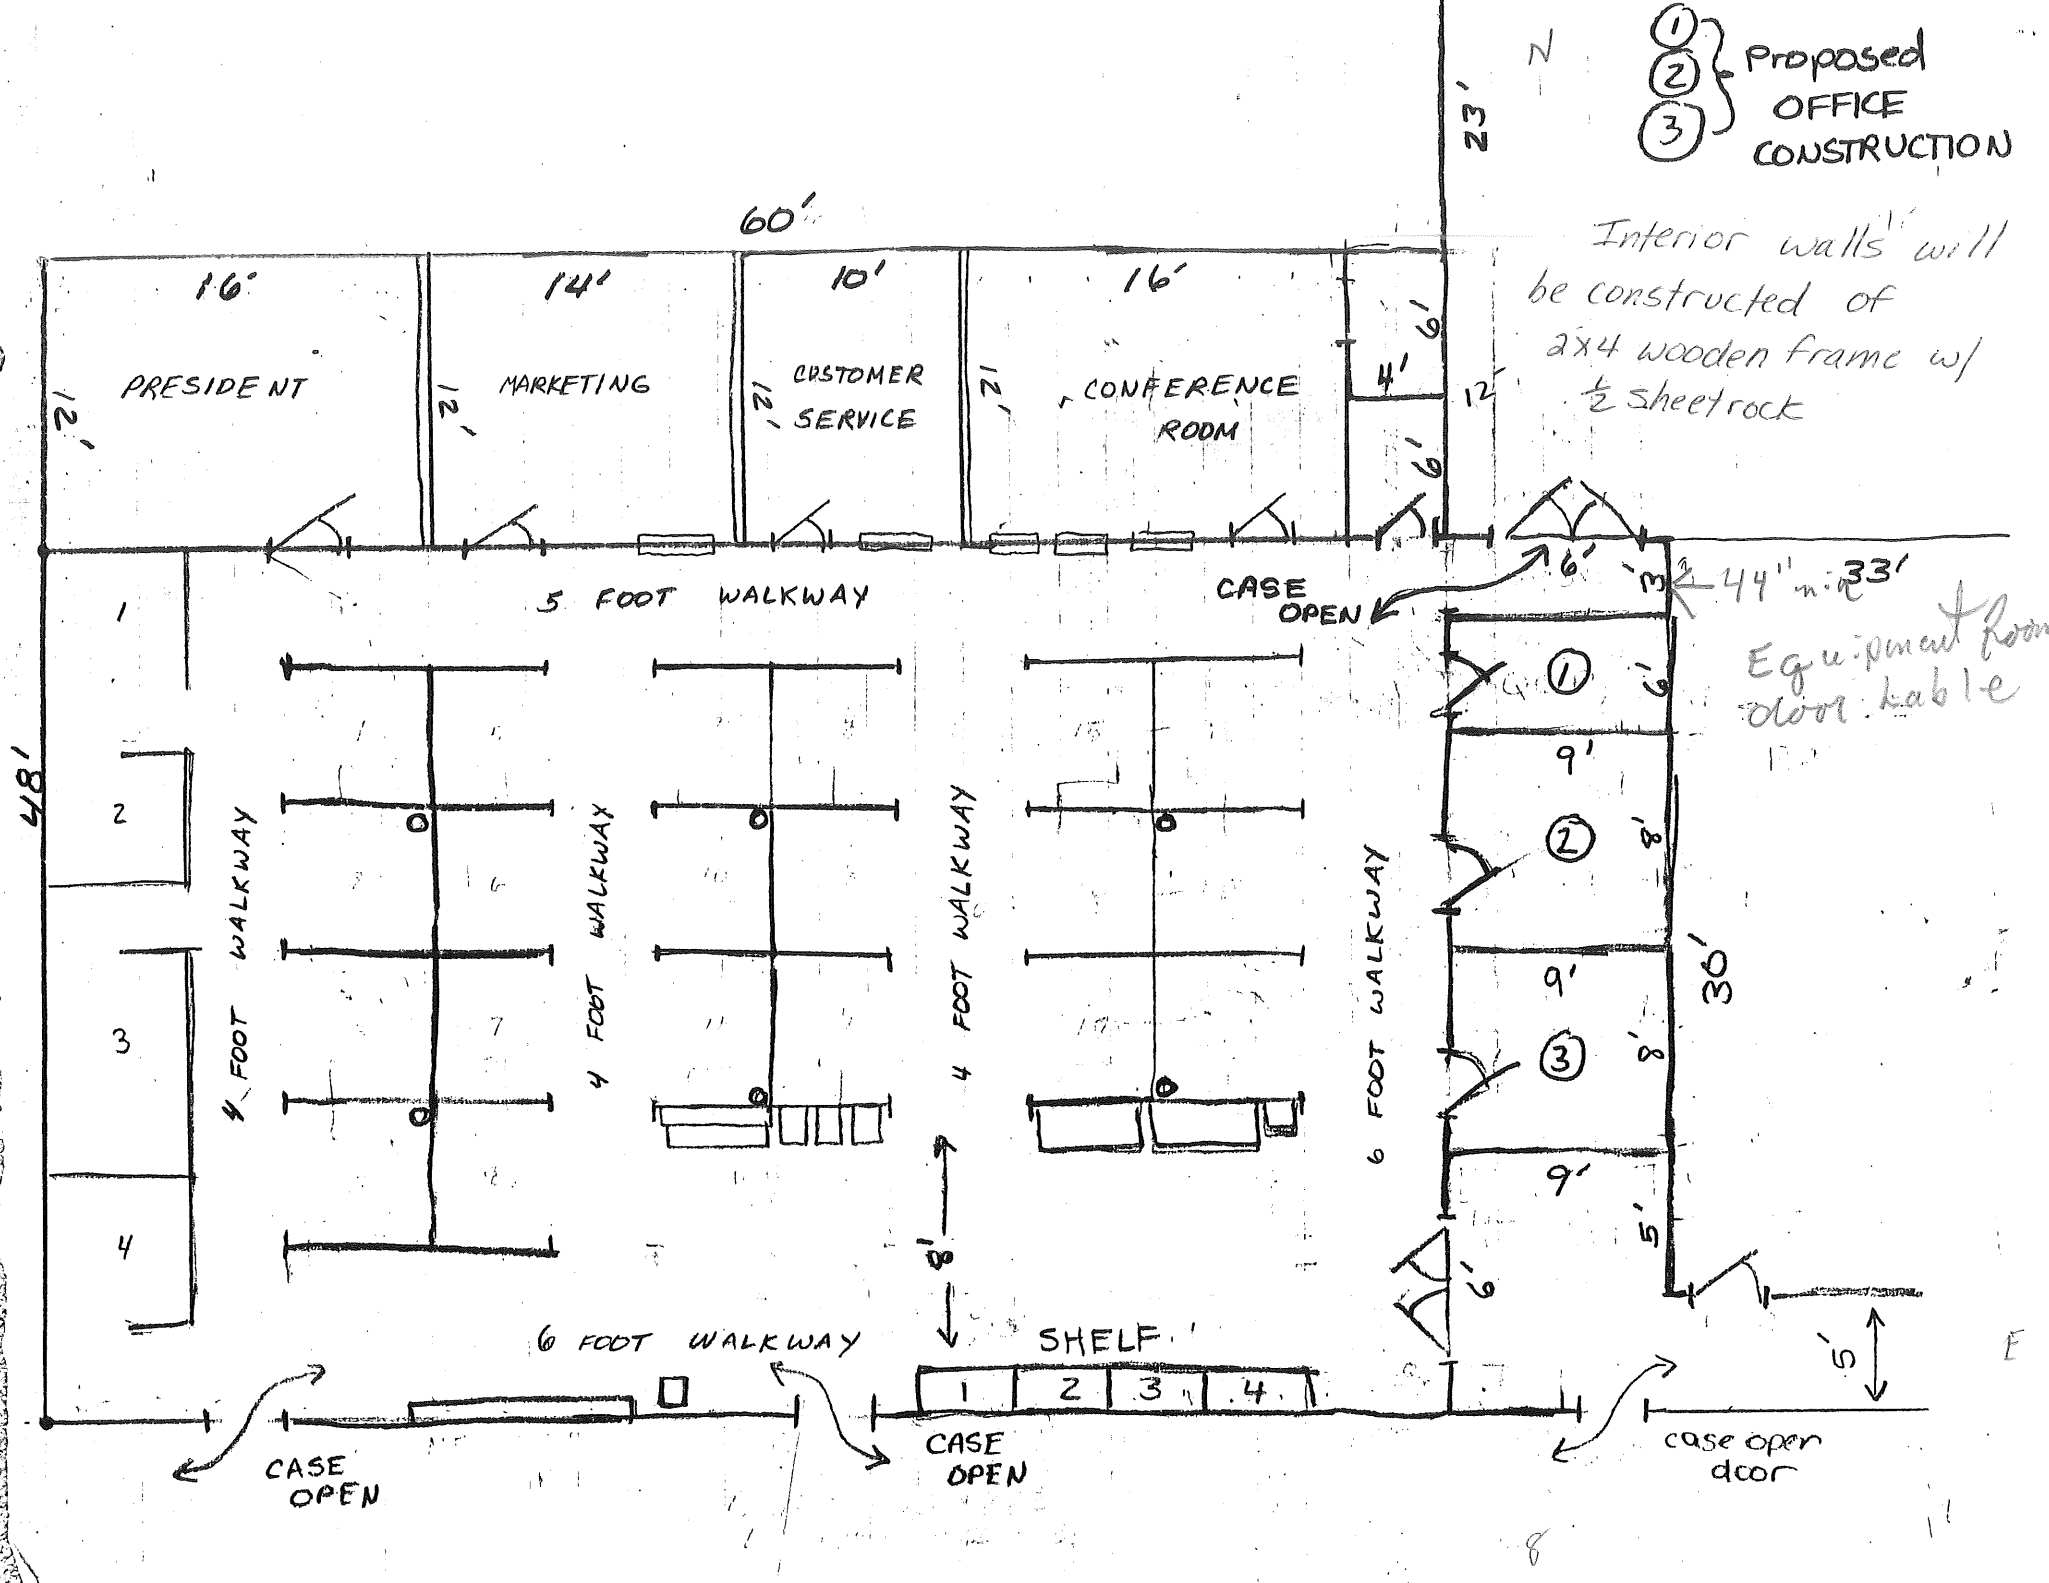 N
1
2
3
Proposed
OFFICE
CONSTRUCTION
23'
60'
Interior walls will
be constructed of
2x4 wooden frame w/
½ sheetrock
16'
14'
10'
16'
6'
12'
PRESIDENT
12'
MARKETING
12'
CUSTOMER
SERVICE
12'
CONFERENCE
ROOM
4'
12'
6'
5 FOOT WALKWAY
CASE
OPEN
6'
3'
44" min
33'
Equipment Room
door Lable
48'
1
2
3
4
4 FOOT WALKWAY
4 FOOT WALKWAY
4 FOOT WALKWAY
6 FOOT WALKWAY
1
6'
9'
2
8'
9'
3
8'
9'
30'
5'
6'
8'
6 FOOT WALKWAY
SHELF
1 2 3 4
5'
E
CASE
OPEN
CASE
OPEN
case open
door
8